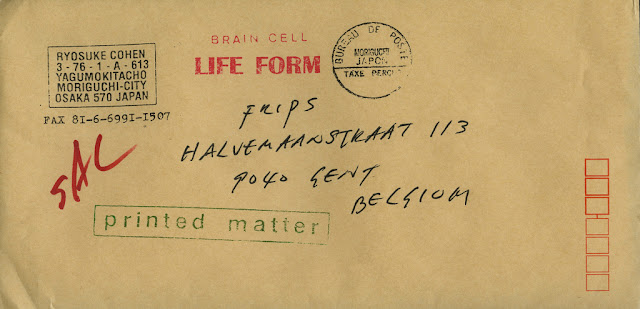 RYOSUKE COHEN
3-76-1-A-613
YAGUMOKITACHO
MORIGUCHI-CITY
OSAKA 570 JAPAN
FAX 81-6-6991-1507
BRAIN CELL
LIFE FORM
BUREAU DE POSTE
MORIGUCHI
JAPON
TAXE PERCU
SAL
FRIPS
HALVEMAANSTRAAT 113
9040 GENT
BELGIUM
printed matter